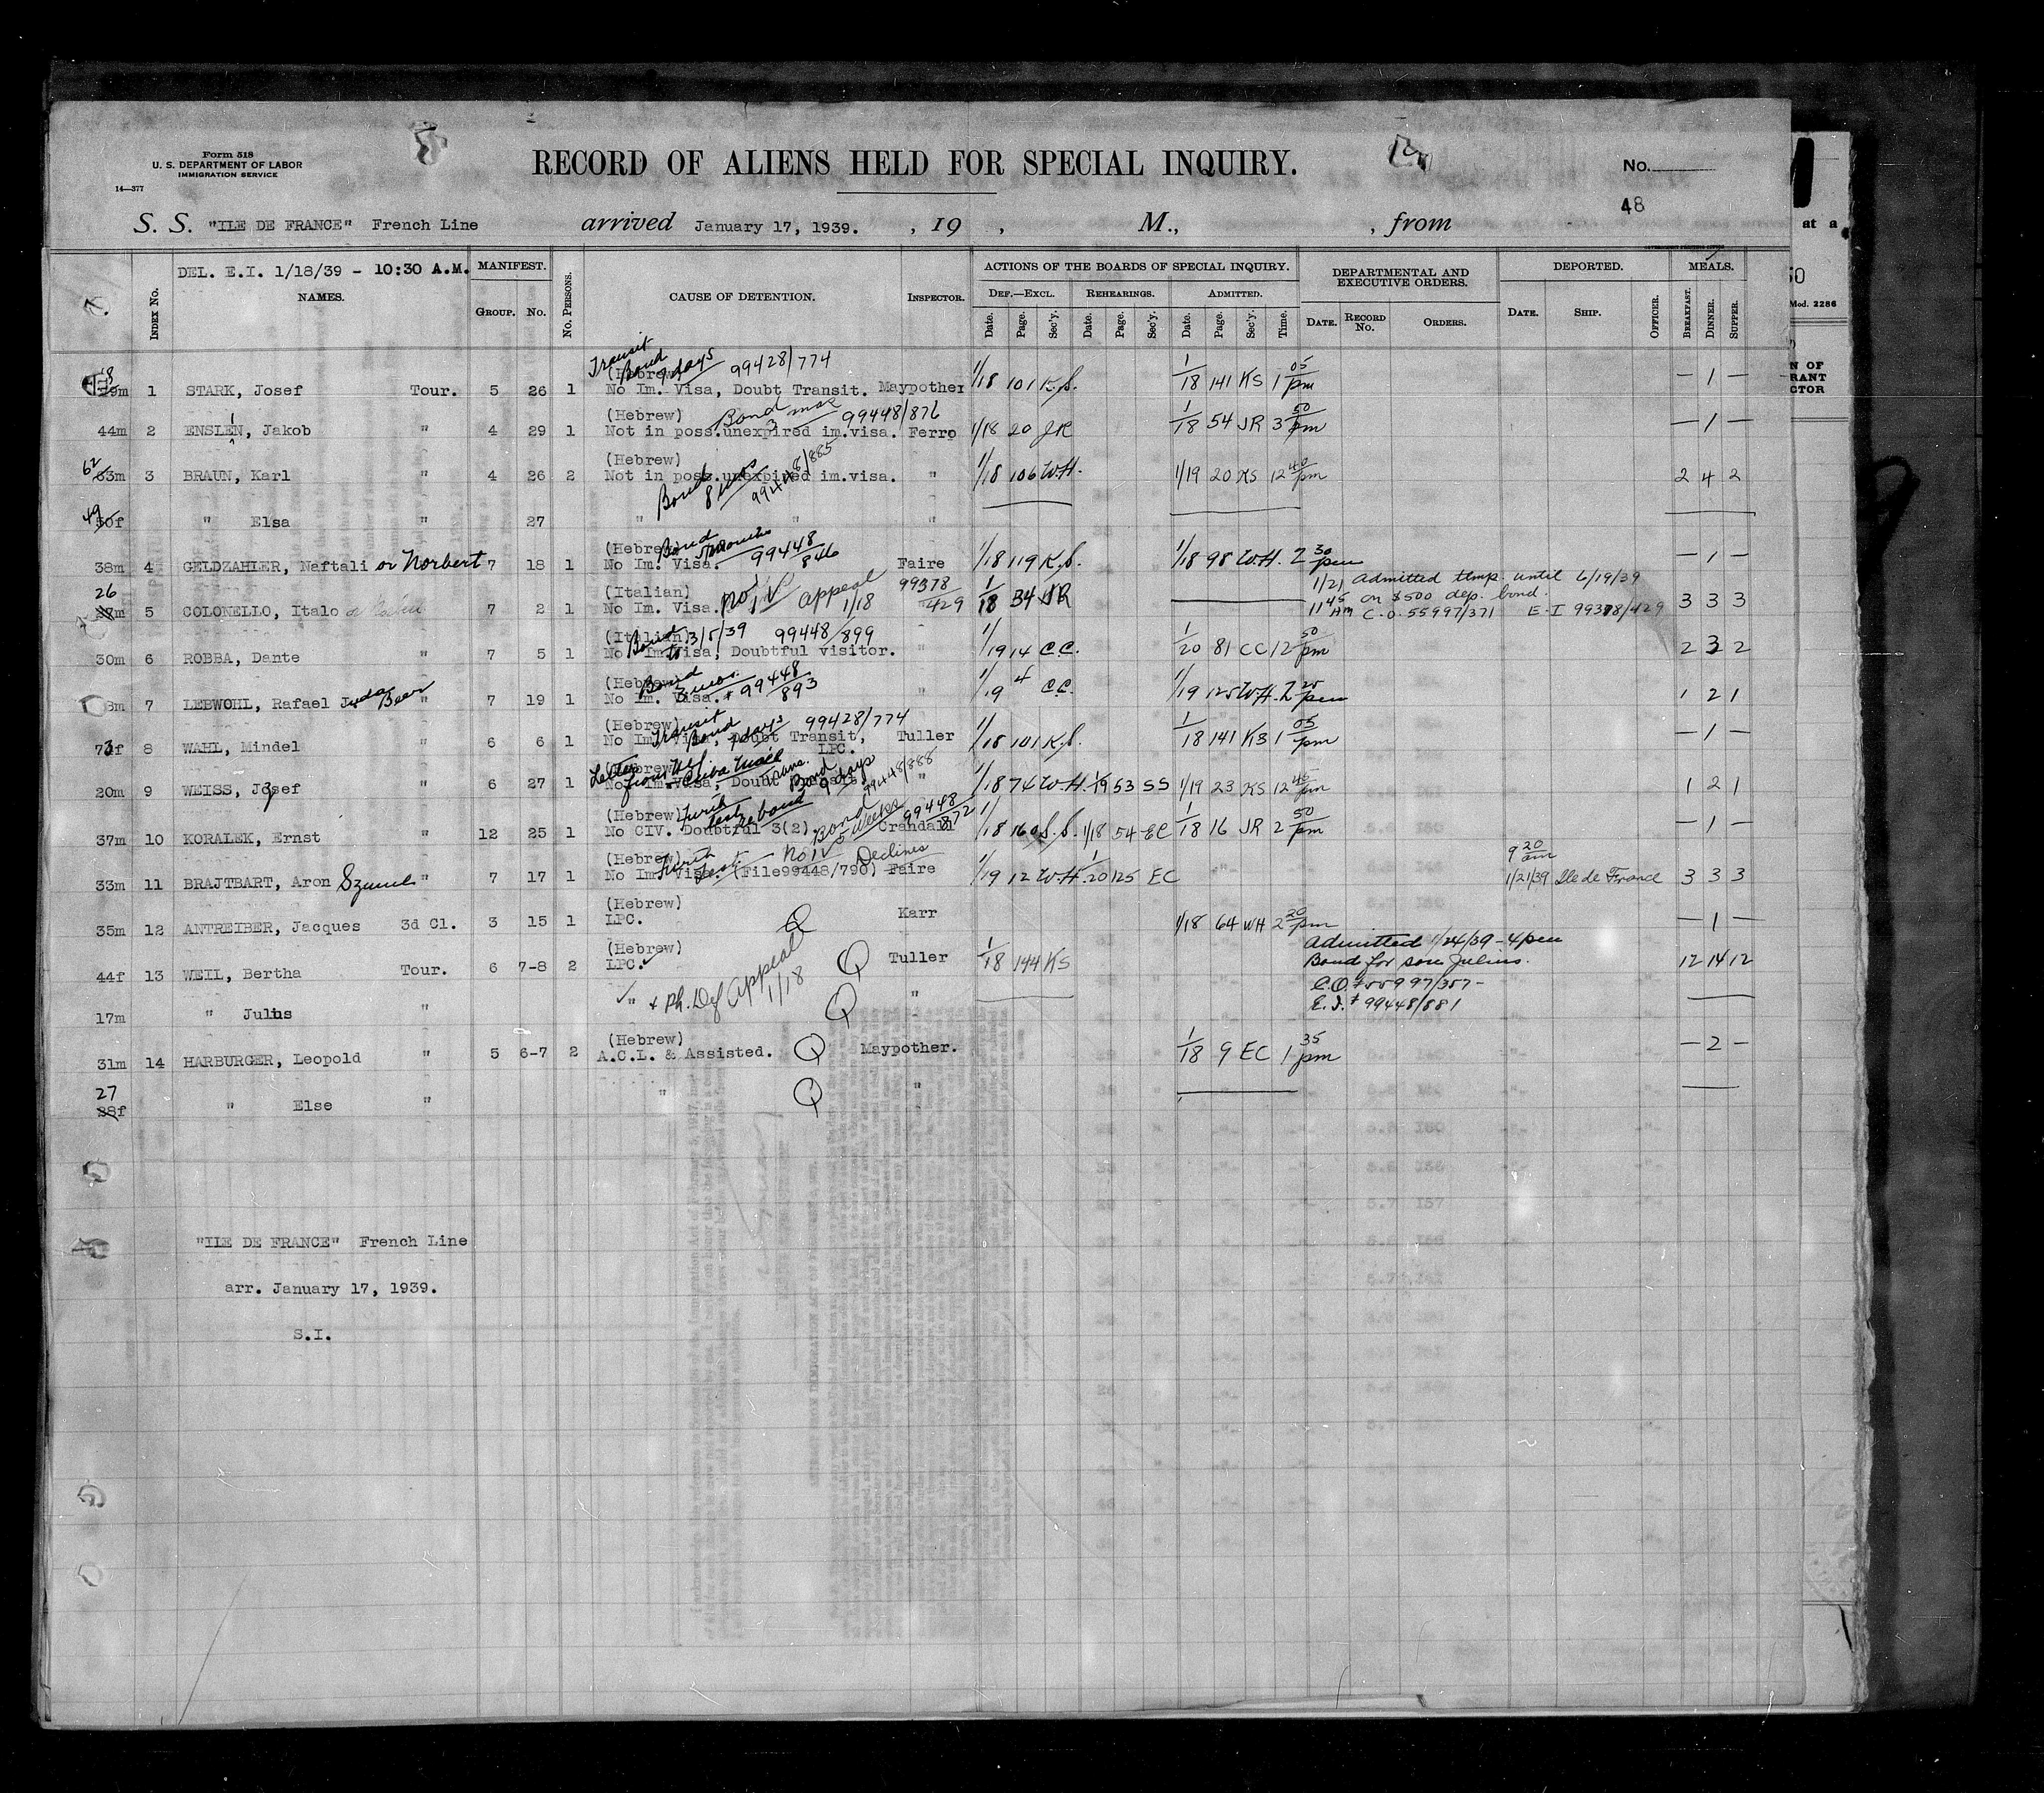 Form 518
U. S. DEPARTMENT OF LABOR
IMMIGRATION SERVICE
14—377
RECORD OF ALIENS HELD FOR SPECIAL INQUIRY.
No.
48
S. S. "ILE DE FRANCE" French Line arrived January 17, 1939. , 19 , M., , from
DEL. E.I. 1/18/39 - 10:30 A.M. MANIFEST. ACTIONS OF THE BOARDS OF SPECIAL INQUIRY. DEPARTMENTAL AND EXECUTIVE ORDERS. DEPORTED. MEALS.
Index No. NAMES. Group. No. No. Persons. CAUSE OF DETENTION. Inspector. Def.—Excl. Rehearings. Admitted.
Date. Page. Sec'y. Date. Page. Sec'y. Date. Page. Sec'y. Time. Date. Record No. Orders. Date. Ship. Officer. Breakfast. Dinner. Supper.
Transit Bond 9 days 99428/774
(Hebrew)
1 STARK, Josef Tour. 5 26 1 No Im. Visa, Doubt Transit. Maypother 1/18 101 K.S. 1/18 141 KS 1 05 pm — 1 —
(Hebrew) Bond 99448/876
44m 2 ENSLEN, Jakob " 4 29 1 Not in poss.unexpired im.visa. Ferro 1/18 20 JR 1/18 54 JR 3 50 pm — 1 —
(Hebrew)
62 63m 3 BRAUN, Karl " 4 26 2 Not in poss.unexpired im.visa. " 1/18 106 W.H. 1/19 20 KS 12 40 pm 2 4 2
Bond 8 mos 99448/885
49 50f " Elsa " 27 " " "
(Hebrew) Bond months 99448/846
38m 4 GELDZAHLER, Naftali or Norbert 7 18 1 No Im. Visa. Faire 1/18 119 K.S. 1/18 98 W.H. 2 30 pm — 1 —
(Italian) No IV appeal 1/18 99378/429
26 27m 5 COLONELLO, Italo 7 2 1 No Im. Visa. 1/18 34 JR 1/21 admitted temp. until 6/19/39 3 3 3
11 45 AM on $500 dep. bond.
C.O. 55997/371 E.I 99378/429
(Italian) Bond to 3/5/39 99448/899
30m 6 ROBBA, Dante " 7 5 1 No Im.Visa, Doubtful visitor. " 1/19 14 C.C. 1/20 81 CC 12 50 pm 2 3 2
(Hebrew) Bond 3 mos. 99448/893
8m 7 LEBWOHL, Rafael Juda Beer " 7 19 1 No Im. Visa. " 1/19 4 C.C. 1/19 125 W.H. 2 25 pm 1 2 1
(Hebrew) Transit Bond days 99428/774
8 WAHL, Mindel " 6 6 1 No Im. Visa, Doubt Transit, LPC. Tuller 1/18 101 K.S. 1/18 141 KS 1 05 pm — 1 —
(Hebrew) Letter from Cuba Mail Bond 9 days 99448/888
20m 9 WEISS, Josef " 6 27 1 No Im.Visa, Doubt Trans. " 1/18 74 W.H. 1/19 53 SS 1/19 23 KS 12 45 pm 1 2 1
(Hebrew) Bond 5 weeks 99448/872
37m 10 KORALEK, Ernst " 12 25 1 No CIV. Doubtful 3(2) Crandall 1/18 160 S.S. 1/18 54 EC 1/18 16 JR 2 50 pm — 1 —
(Hebrew) No IV Declines
33m 11 BRAJTBART, Aron Szmul " 7 17 1 No Im. Visa. (File99448/790) Faire 1/19 12 W.H. 1/20 125 EC 9 20 am 1/21/39 Ile de France 3 3 3
(Hebrew)
35m 12 ANTREIBER, Jacques 3d Cl. 3 15 1 LPC. Q Karr 1/18 64 WH 2 20 pm — 1 —
(Hebrew)
44f 13 WEIL, Bertha Tour. 6 7-8 2 LPC. Q Tuller 1/18 144 KS Admitted 1/24/39 - 4 pm 12 14 12
Bond for son Julius.
17m " Julius " " & Ph. Def Appeal 1/18 Q " C.O. # 55997/357-
E.I. # 99448/881
(Hebrew)
31m 14 HARBURGER, Leopold " 5 6-7 2 A.C.L. & Assisted. Q Maypother. 1/18 9 EC 1 35 pm — 2 —
27 28f " Else " " Q "
"ILE DE FRANCE" French Line
arr. January 17, 1939.
S.I.
at a
Mod. 2286